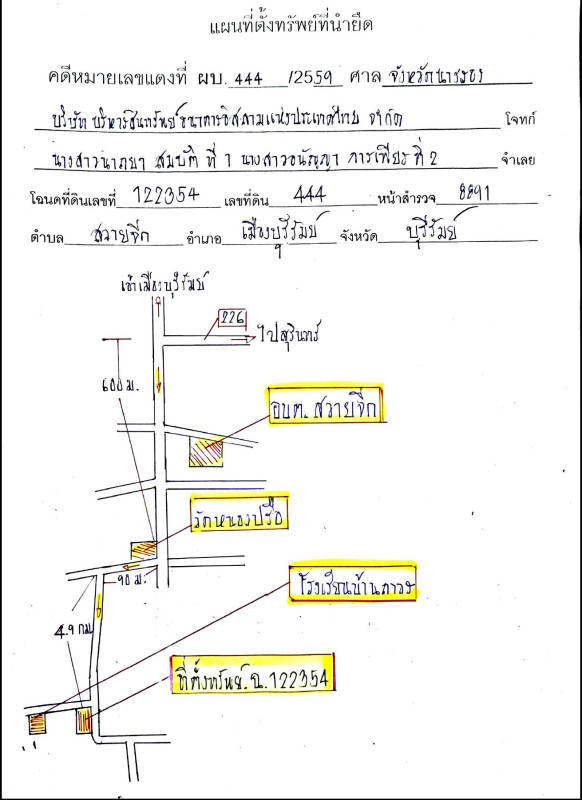 แผนที่ตั้งทรัพย์ที่นำยึด
คดีหมายเลขแดงที่ ผบ. 444 /2559 ศาล จังหวัดนางรอง
บริษัท บริหารสินทรัพย์ธนาคารอิสลามแห่งประเทศไทย จำกัด โจทก์
นางสาวนาตยา สมบัติ ที่ 1 นางสาวอนัญญา การเพียร ที่ 2 จำเลย
โฉนดที่ดินเลขที่ 122354 เลขที่ดิน 444 หน้าสำรวจ 8891
ตำบล สวายจีก อำเภอ เมืองบุรีรัมย์ จังหวัด บุรีรัมย์
เข้าเมืองบุรีรัมย์
226
ไปสุรินทร์
600 ม.
อบต. สวายจีก
วัดหนองปรือ
90 ม.
โรงเรียนบ้านถาวร
4.9 กม.
ที่ตั้งทรัพย์ ฉ. 122354